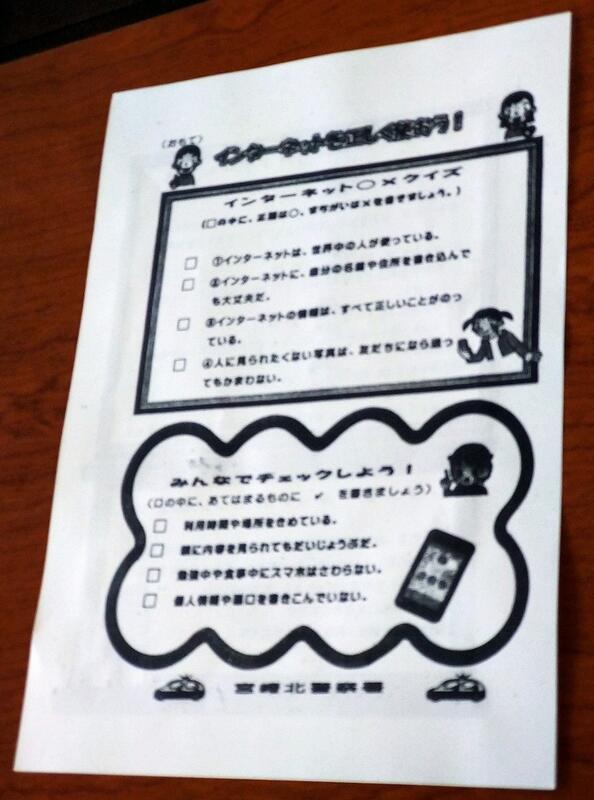 (おもて)
インターネットを正しく使おう!
インターネット〇×クイズ
(□の中に、正解は〇、まちがいは×を書きましょう。)
□ ①インターネットは、世界中の人が使っている。
□ ②インターネットに、自分の名前や住所を書き込んで
も大丈夫だ。
□ ③インターネットの情報は、すべて正しいことがのっ
ている。
□ ④人に見られたくない写真は、友だちになら送っ
てもかまわない。
みんなでチェックしよう!
(□の中に、あてはまるものに ✓ を書きましょう)
□ 利用時間や場所をきめている。
□ 親に内容を見られてもだいじょうぶだ。
□ 勉強中や食事中にスマホはさわらない。
□ 個人情報や悪口を書きこんでいない。
宮崎北警察署